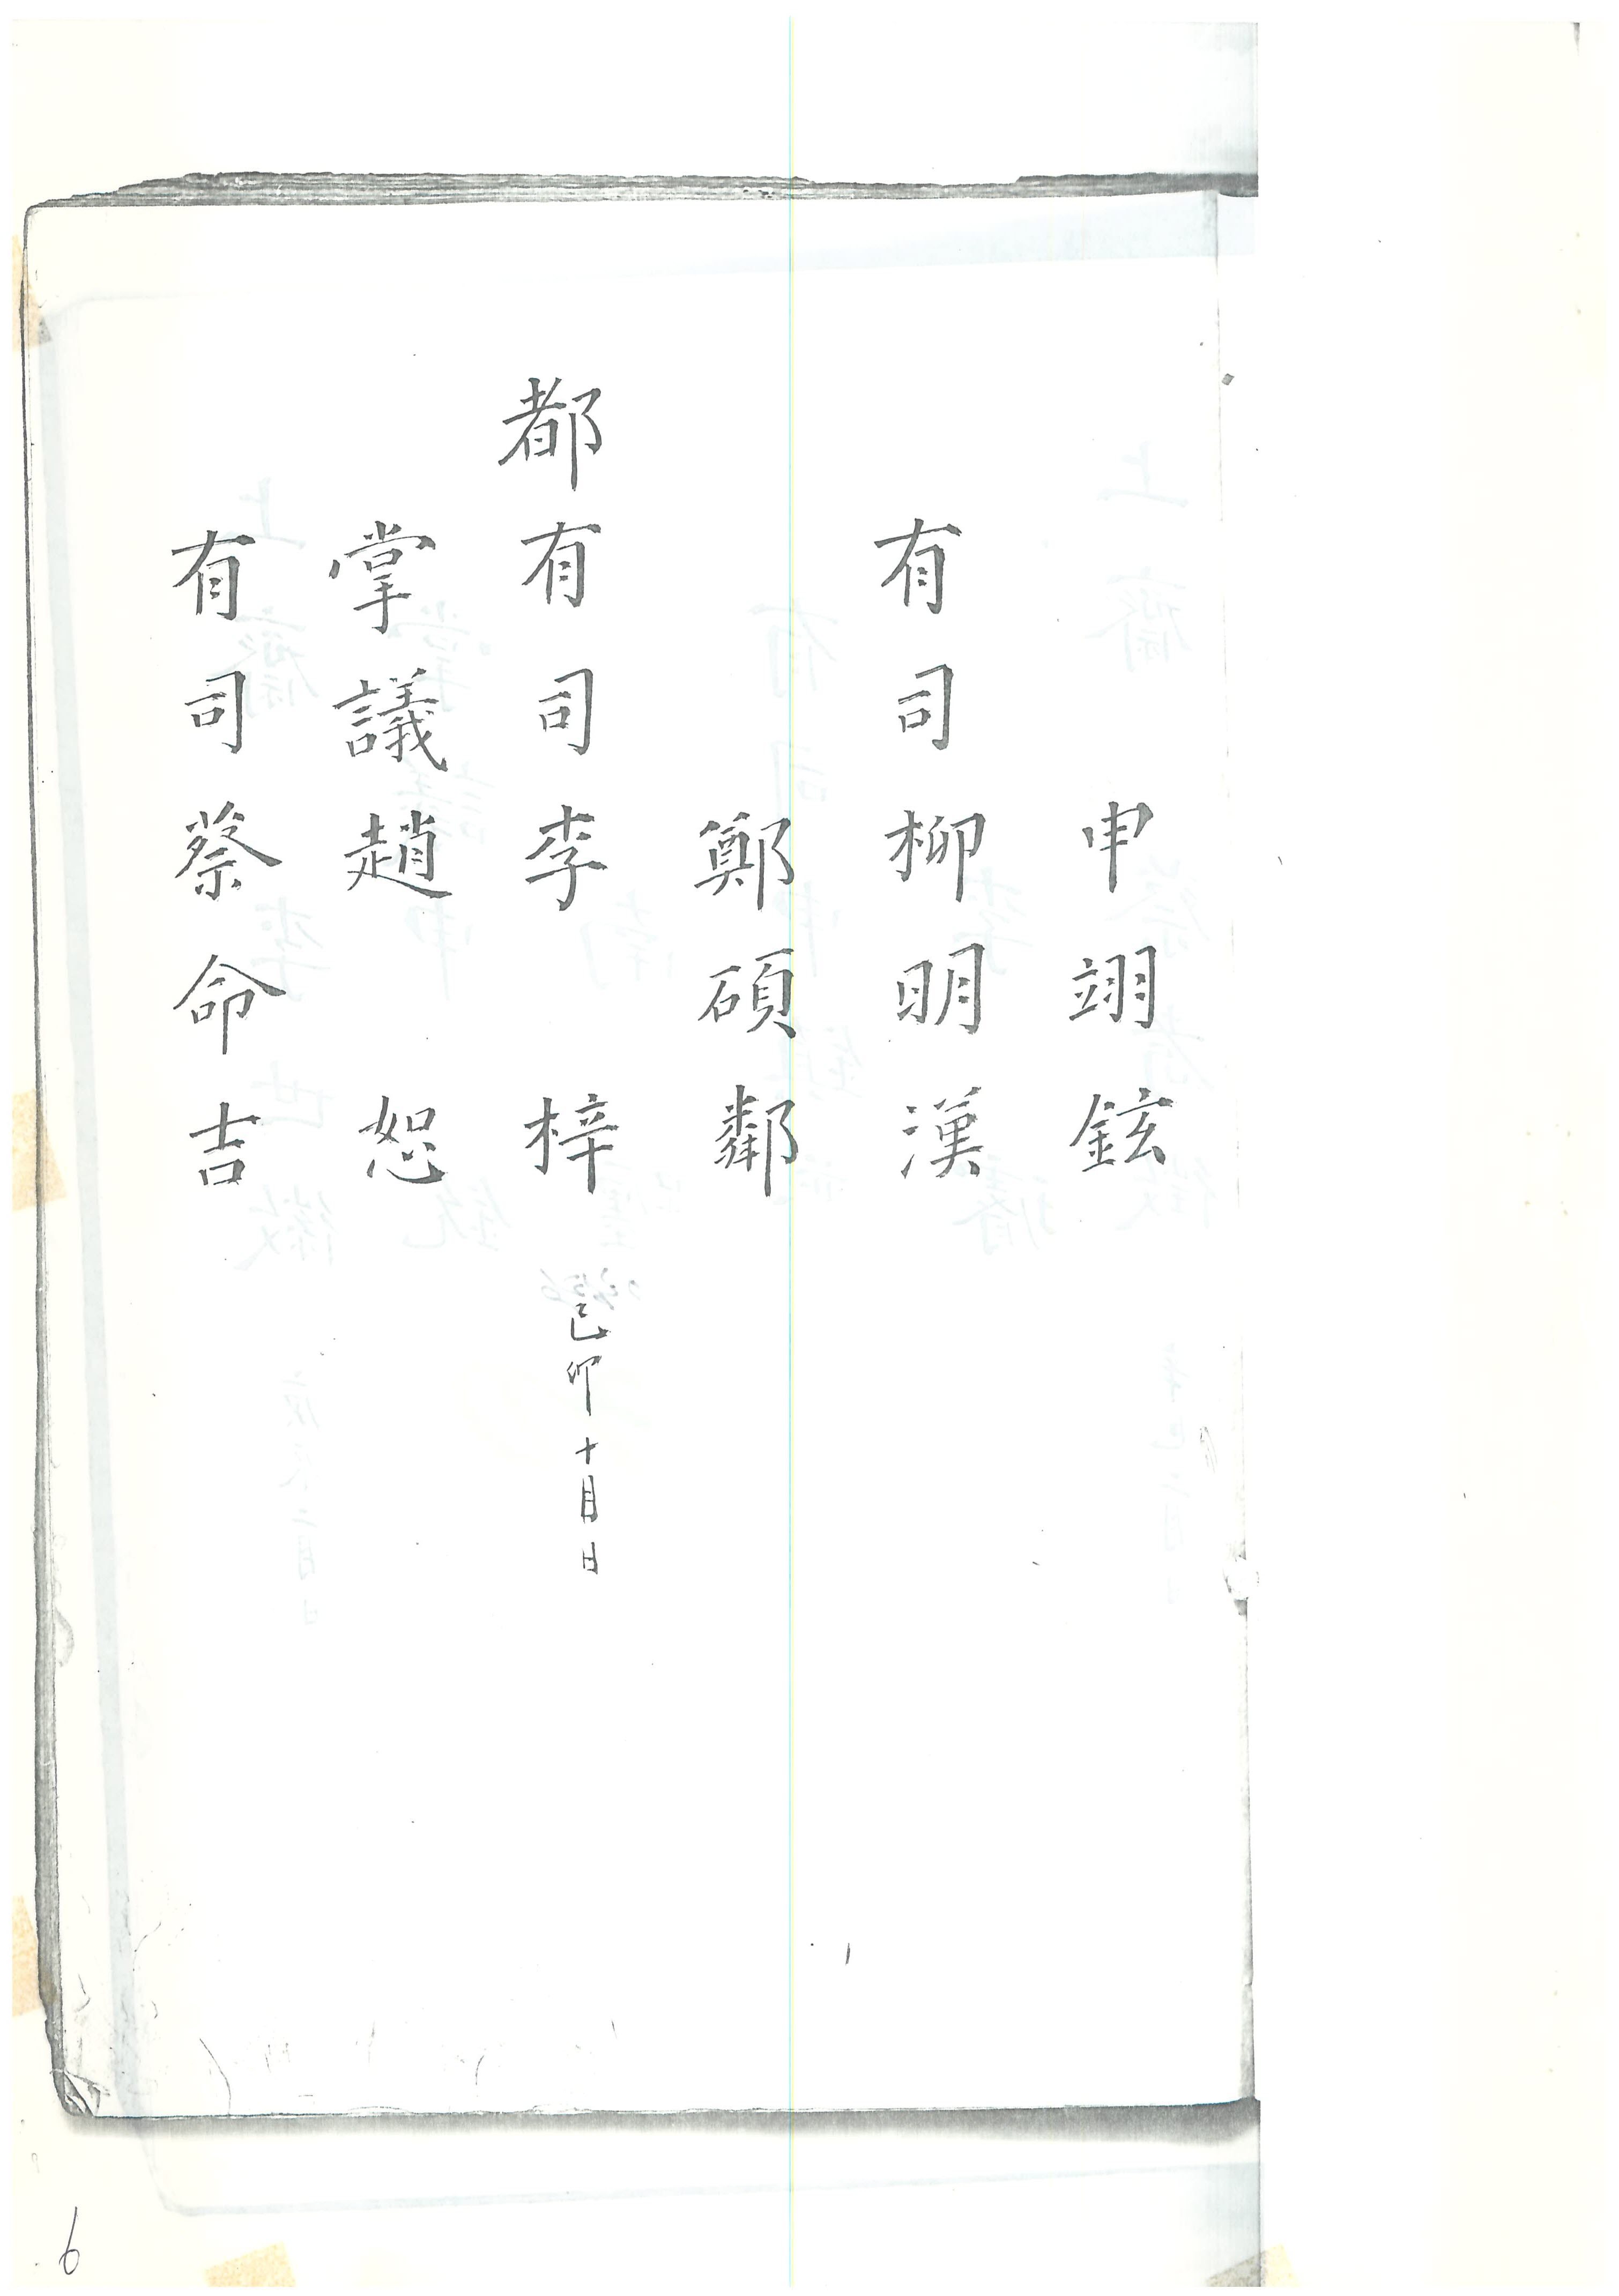 申翊鉉
有司柳明漢
鄭碩鄰
都有司李梓 己卯十月日
掌議趙恕
有司蔡命吉
6